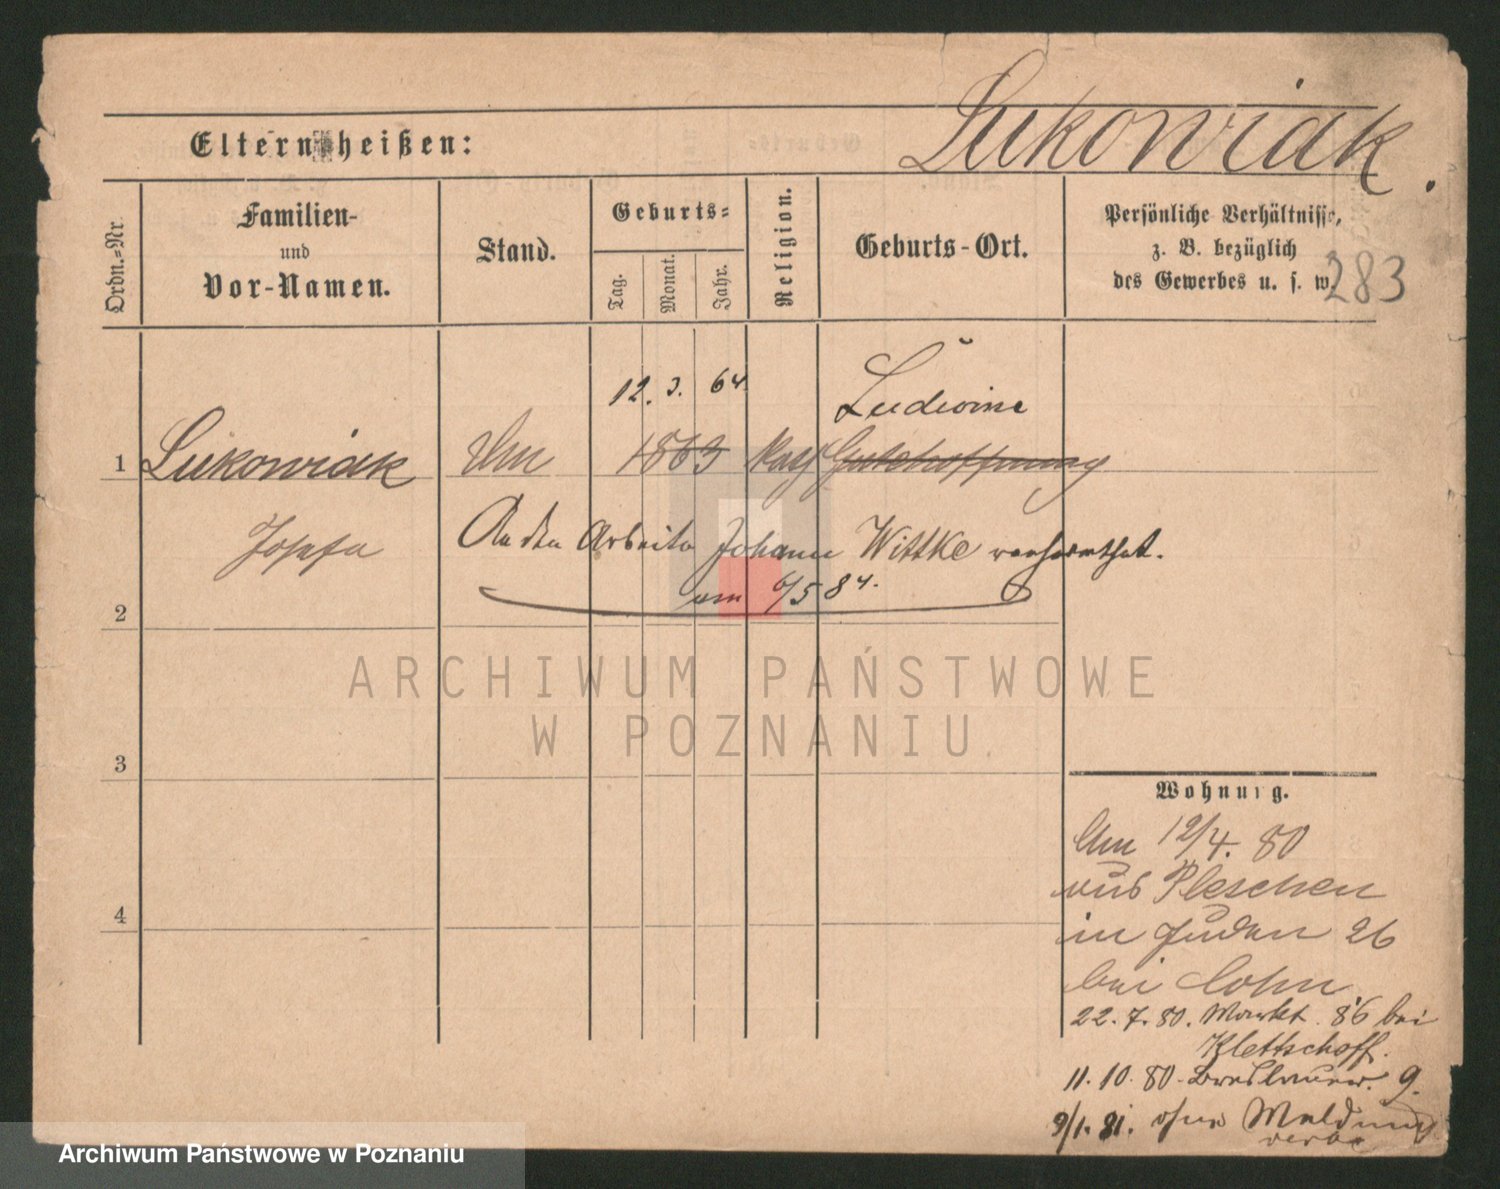 Lukowiak.
Eltern heißen:
Ordn.=Nr.
Familien-
und
Vor-Namen.
Stand.
Geburts=
Tag.
Monat.
Jahr.
Religion.
Geburts-Ort.
Persönliche Verhältnisse,
z. B. bezüglich
des Gewerbes u. s. w.
283
12. 3. 64
Ludwina
1 Lukowiak 1863 Kath Gutehoffnung
Josefa
An den Arbeiter Johann Wittke verheirathet.
am 6/5 84.
2
ARCHIWUM PAŃSTWOWE
W POZNANIU
3
4
Wohnung.
Am 12/4. 80
aus Pleschen
in Juden 26
bei Cohn
22. 7. 80. Markt 86 bei
Klettschoff.
11. 10. 80. Breslauer. 9.
9/1. 81. ohne Meldung
Archiwum Państwowe w Poznaniu